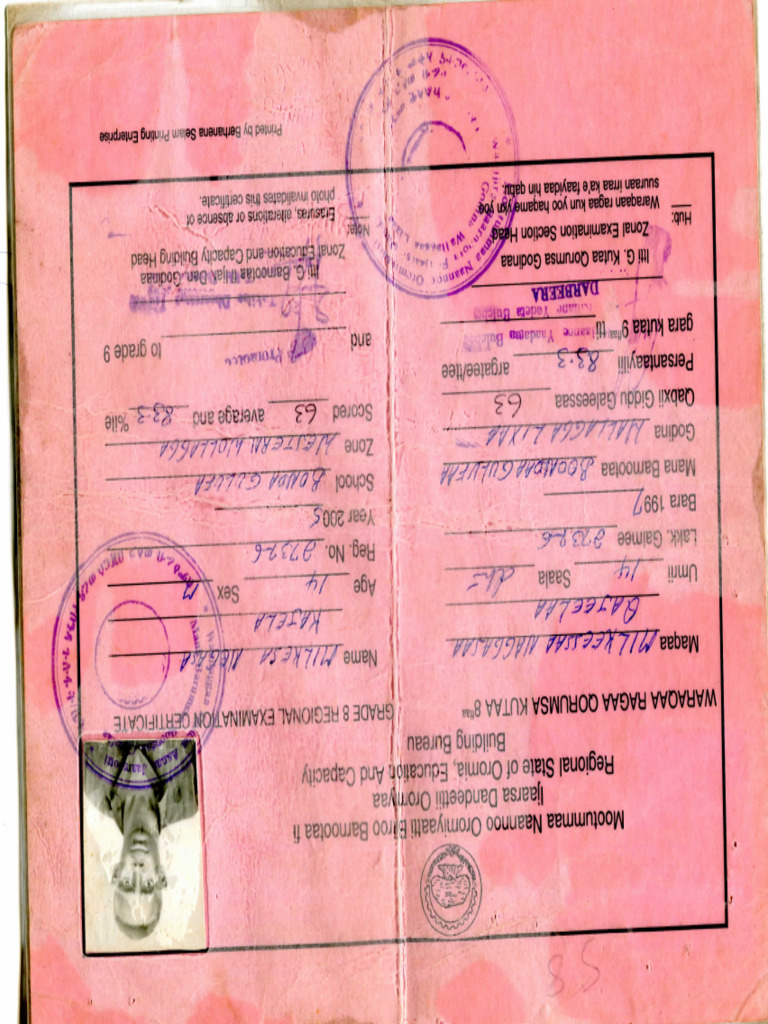 58
Mootummaa Naannoo Oromiyaatti Biroo Barnootaa fi
Ijaarsa Dandeettii Oromiyaa
Regional State of Oromia, Education And Capacity
Building Bureau
WARAQAA RAGAA QORUMSA KUTAA 8ffaa
Maqaa MILKEESSAA NAGGASAA
QAJEELAA
Umrii 14 Saala dhi
Lakk. Galmee 27376
Bara 1997
Mana Barnootaa BOONDAA GULUFAA
Godina WALLAGGA LIXAA
Qabxii Giddu Galeessaa 63
Persantaayilii 83.3 argatee/ttee
gara kutaa 9ffaa tti
DARBEERA
Itti G. Kutaa Qorumsa Godinaa
Zonal Examination Section Head
Hub: Waraqaan ragaa kun yoo haqame ykn yoo
suuraan irraa ka'e faayidaa hin qabu
GRADE 8 REGIONAL EXAMINATION CERTIFICATE
Name MILKESA NEGASA
KAJELA
Age 14 Sex M
Reg. No. 27376
Year 2005
School BONDA GULUFA
Zone WESTERN WOLLAGGA
Scored 63 average and 83.3 %ile
and Promoted to grade 9
Itti G. Barnootaa fi Ijah Dan. Godinaa
Zonal Education and Capacity Building Head
Note: Erasures, alterations or absence of
photo invalidates this certificate.
Printed by Berhanena Selam Printing Enterprise